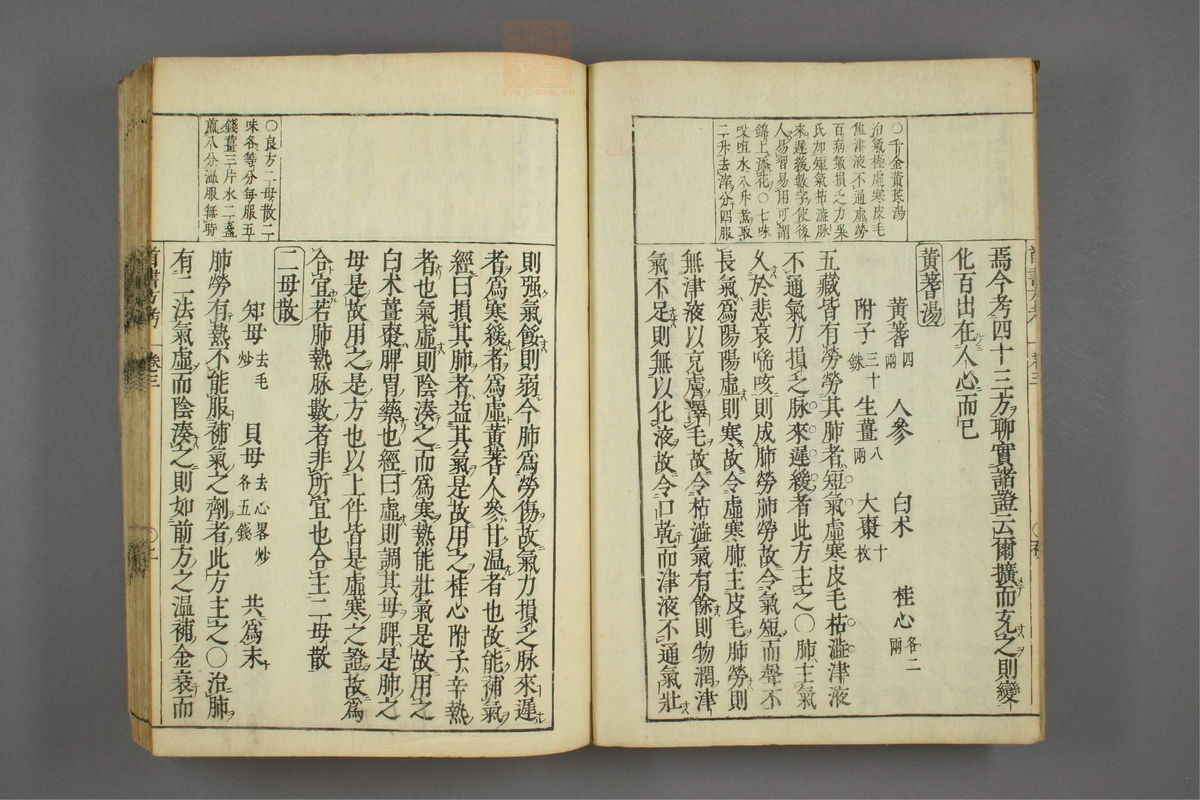 ○千金黃芪湯
治氣極虛寒皮毛
焦津液不通虛勞
百病氣損乏力吳
氏加短氣枯澁脉
來遲緩數字使後
人易習易用可謂
錦上添花○七味
㕮咀水八升煮取
二升去滓分四服
焉今考四十三方聊實諸證云爾擴而充之則變
化百出在人心而已
黃蓍湯
黃蓍四兩 人參 白朮 桂心各二兩
附子三十銖 生薑八兩 大棗十枚
五藏皆有勞勞其肺者短氣虛寒皮毛枯澁津液
不通氣力損乏脉來遲緩者此方主之○肺主氣
久於悲哀喘咳則成肺勞肺勞故令氣短而聲不
長氣爲陽陽虛則寒故令虛寒肺主皮毛肺勞則
無津液以充膚澤毛故令枯澁氣有餘則物潤津
氣不足則無以化液故令口乾而津液不通氣壯
○良方二母散二
味各等分每服五
錢薑三片水二盞
煎八分溫服無時
則强氣餒則弱今肺爲勞傷故氣力損乏脉來遲
者爲寒緩者爲虛黃蓍人參甘溫者也故能補氣
經曰損其肺者益其氣是故用之桂心附子辛熱
者也氣虛則陰湊之而爲寒熱能壯氣是故用之
白朮薑棗脾胃藥也經曰虛則調其母脾是肺之
母是故用之是方也以上件皆是虛寒之證故爲
合宜若肺熱脉數者非所宜也合主二母散
二母散
知母去毛炒 貝母去心畧炒各五錢 共爲末
肺勞有熱不能服補氣之劑者此方主之○治肺
有二法氣虛而陰湊之則如前方之溫補金衰而
卷三